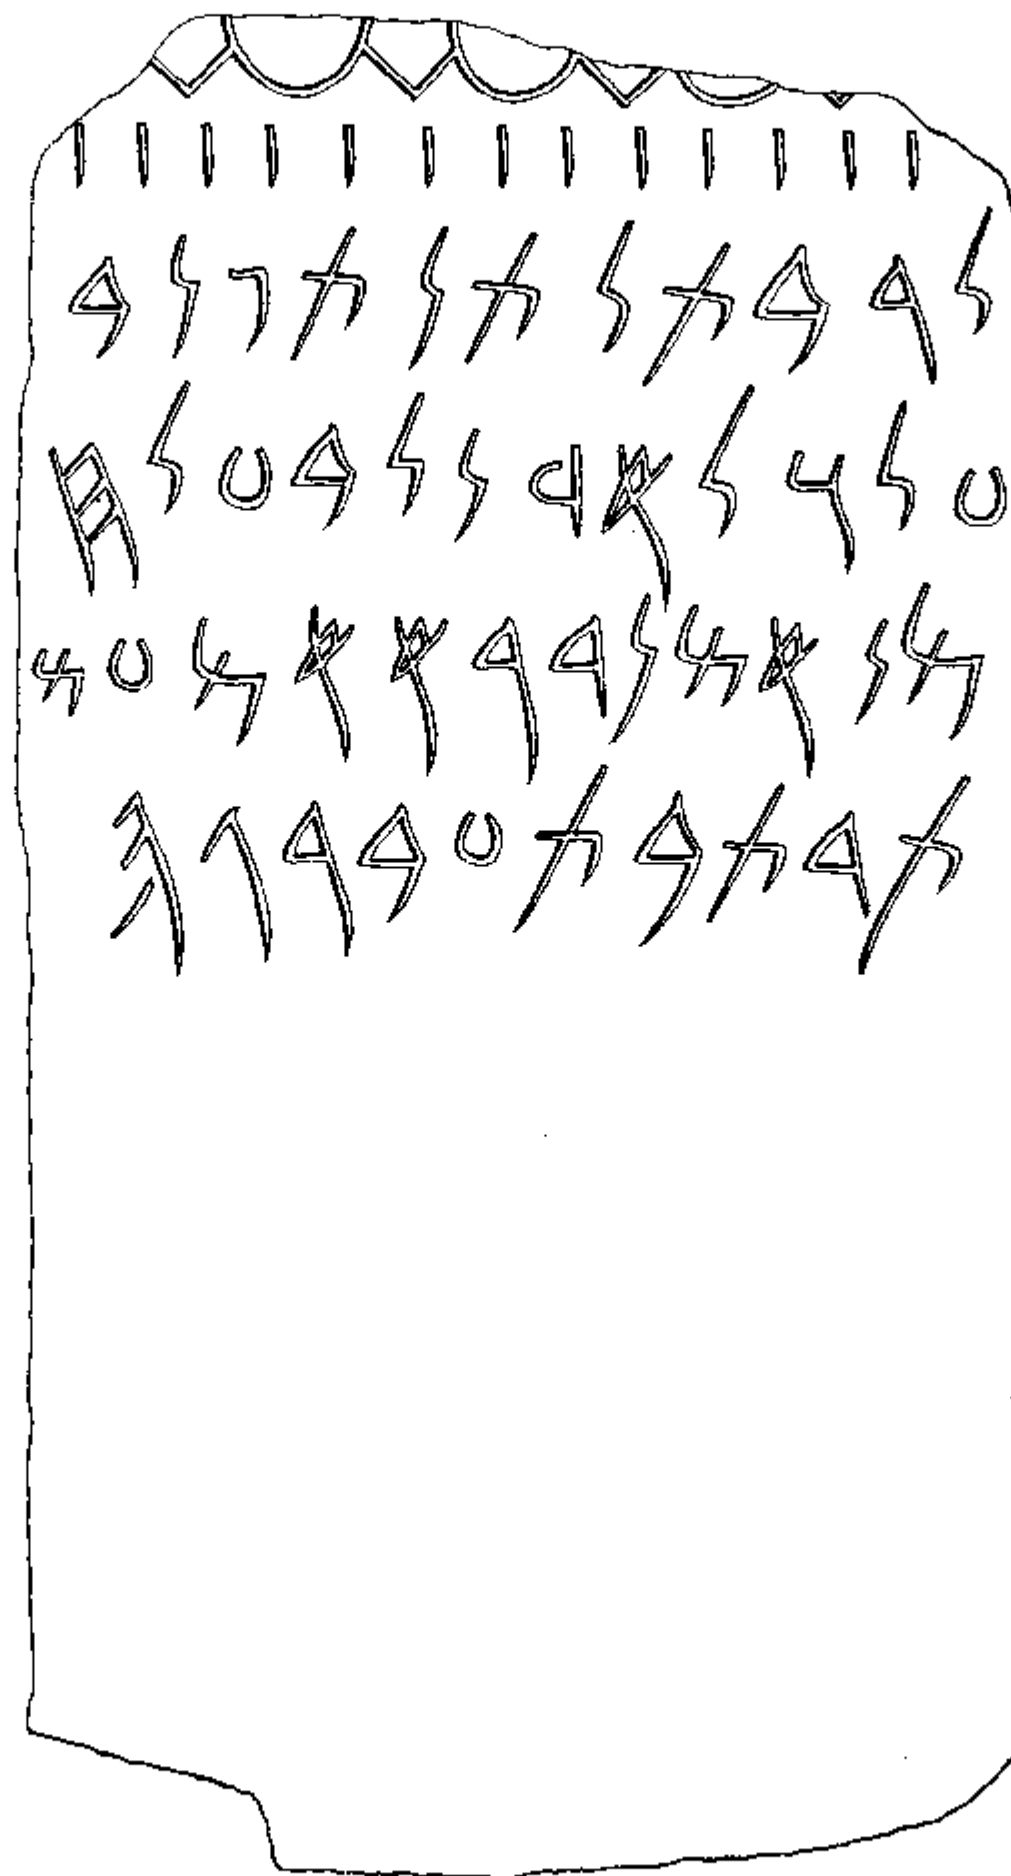 𐤋𐤓𐤁𐤕𐤋𐤕𐤍𐤕𐤐𐤍𐤁
𐤏𐤋𐤅𐤋𐤀𐤃𐤍𐤋𐤁𐤏𐤋𐤇
𐤌𐤍𐤀𐤔𐤍𐤃𐤓𐤀𐤀𐤌𐤏𐤔
𐤕𐤓𐤕𐤁𐤕𐤏𐤁𐤃𐤂𐤄